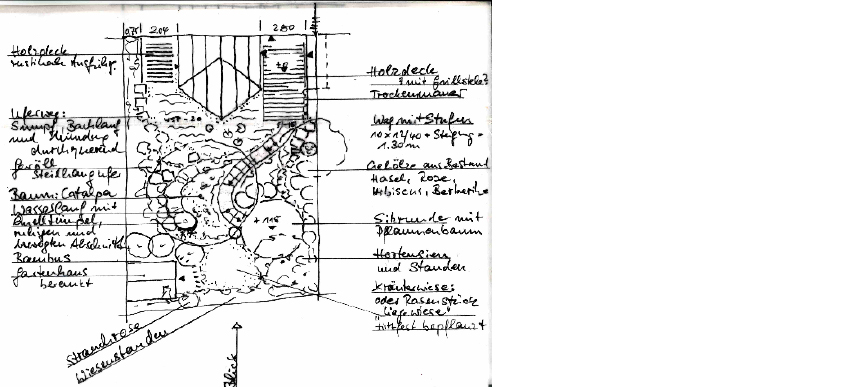 0.75 2.04 2.80
Holzdeck,
rustikale Ausführg.
Uferweg:
Sumpf, Bachlauf
und Mündung
durchquerend
Steilhangufer
Baum: Catalpa
Wasserlauf mit
Quelltümpel,
ruhigen und
bewegten Abschnitt
Bambus
Gartenhaus
berankt
Strandrose
Wiesenstauden
Blick
+ 115
Holzdeck
mit Grillstelle?
Trockenmauer
Weg mit Stufen
10 x 12/40 = Steigung =
1.30 m
Gehölze aus Bestand
Hasel, Rose,
Hibiscus, Berberitze
Sitzrunde mit
Pflaumenbaum
Hortensien
und Stauden
Kräuterwiese:
oder Rasenstück
"Liegewiese"
trittfest bepflanzt